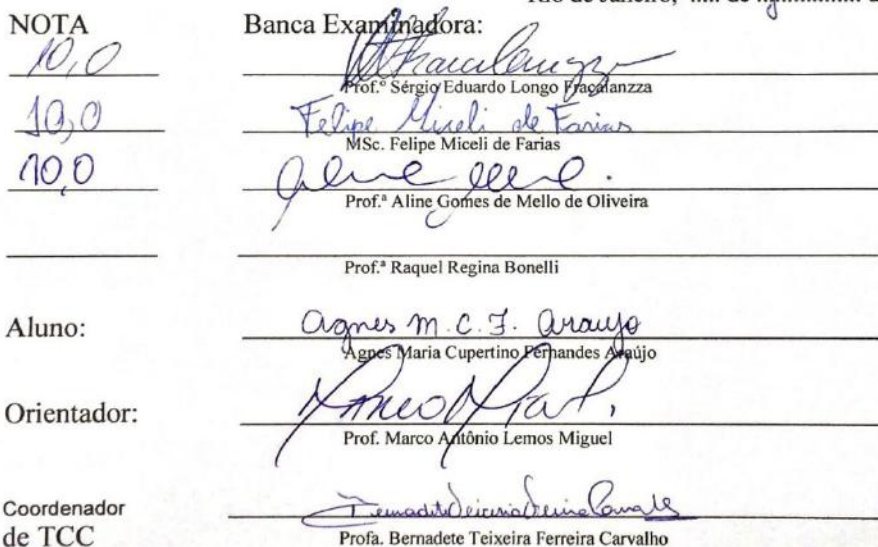 Rio de Janeiro, ..... de
NOTA Banca Examinadora:
10,0
Prof.º Sérgio Eduardo Longo Fracalanzza
10,0 Felipe Miceli de Farias
MSc. Felipe Miceli de Farias
10,0
Prof.ª Aline Gomes de Mello de Oliveira
Prof.ª Raquel Regina Bonelli
Aluno: Agnes M. C. F. Araujo
Agnes Maria Cupertino Fernandes Araújo
Orientador:
Prof. Marco Antônio Lemos Miguel
Coordenador
de TCC
Profa. Bernadete Teixeira Ferreira Carvalho